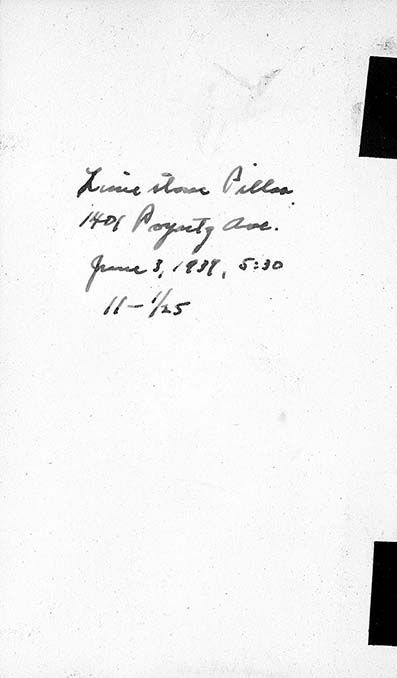 Lime stone Pillar
1401 Poyntz Ave.
June 3, 1939, 5:30
11 - 1/25